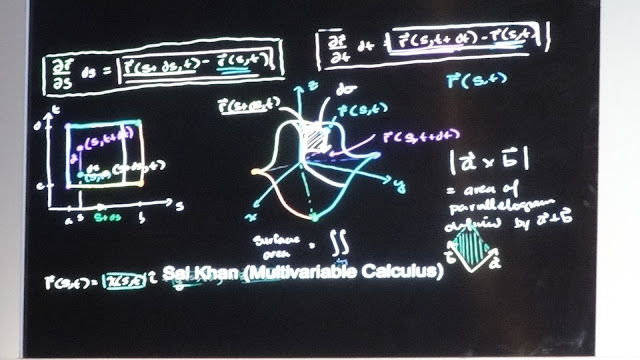 ∂r⃗/∂s ds = r⃗(s+ds,t) - r⃗(s,t)
∂r⃗/∂t dt = r⃗(s,t+dt) - r⃗(s,t)
r⃗(s,t)
t
d
(s,t+dt)
(s+ds,t)
c
a s s+ds b s
z
r⃗(s+ds,t)
dσ
r⃗(s,t)
r⃗(s,t+dt)
x
y
|a⃗ × b⃗|
= area of
parallelogram
defined by a⃗+b⃗
b⃗ a⃗
surface
area = ∬
r⃗(s,t) = x(s,t) i
Sal Khan (Multivariable Calculus)